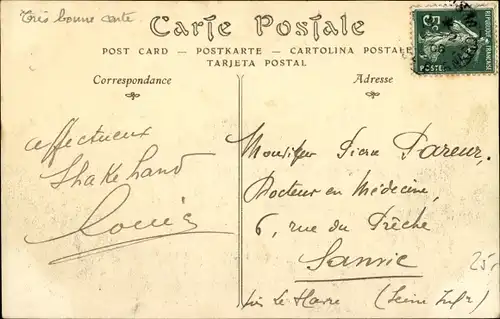 Très bonne carte
Carte Postale
POST CARD — POSTKARTE — CARTOLINA POSTALE
TARJETA POSTAL
Correspondance
Adresse
affectueux
Shake hand
Louis
Monsieur Pierre Pareur,
Docteur en Médecine,
6, rue du Prêche
Sanvic
près Le Havre (Seine Infre)
25,
5c
POSTES